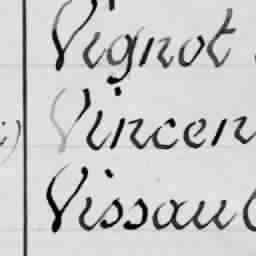 Vignot
Vincen
Vissau